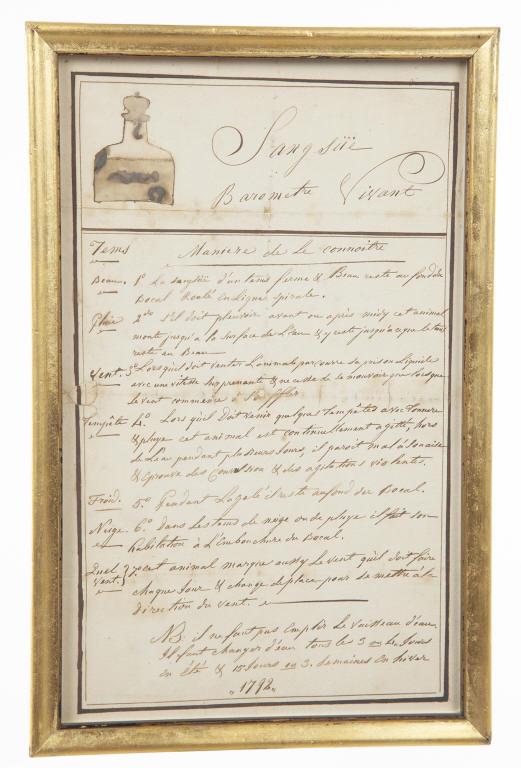 Sangsüe
Barometre Vivant
Tems Maniere de Le connoitre
Beau. 1º La sangsüe d'un tems ferme & Beau reste au fond du
Bocal Roulé en Ligne spirale.
Pluie 2do s'il doit pleuvoir avant ou après midy cet animal
monte jusqu'a la surface de l'eau & y reste jusqu'a ce que le tems
reste au Beau
Vent. 3º Lorsqu'il doit venter L'animal parcourre sa prison Liquide
avec une vitesse surprenante & ne cesse de se mouvoir que lorsque
le vent commence à souffler.
Tempête 4º. Lors qu'il Doit venir quelque Tampêtes avec Tonnere
& pluye cet animal est continuellement agitté hors
de L'eau pendant plusieurs Jours, il paroit mal à son aise
& Eprouve des Convulsion & des agitations violentes.
Froid. 5.º Pendant La gelé il reste au fond du Bocal.
Neige 6º. dans les tems de neige ou de pluye il fait son
habitation à L'Embouchure du Bocal.
Quel vent. 7º. cet animal marque aussy le vent qu'il doit faire
chaque Jour & change de place pour se mettre à la
direction du vent.
NB. il ne faut pas Emplir le vaisseau d'eau
Il faut changer d'eau tous les 3 ou 4. Jours
en été & 15 Jours ou 3. semaines en hiver
1792